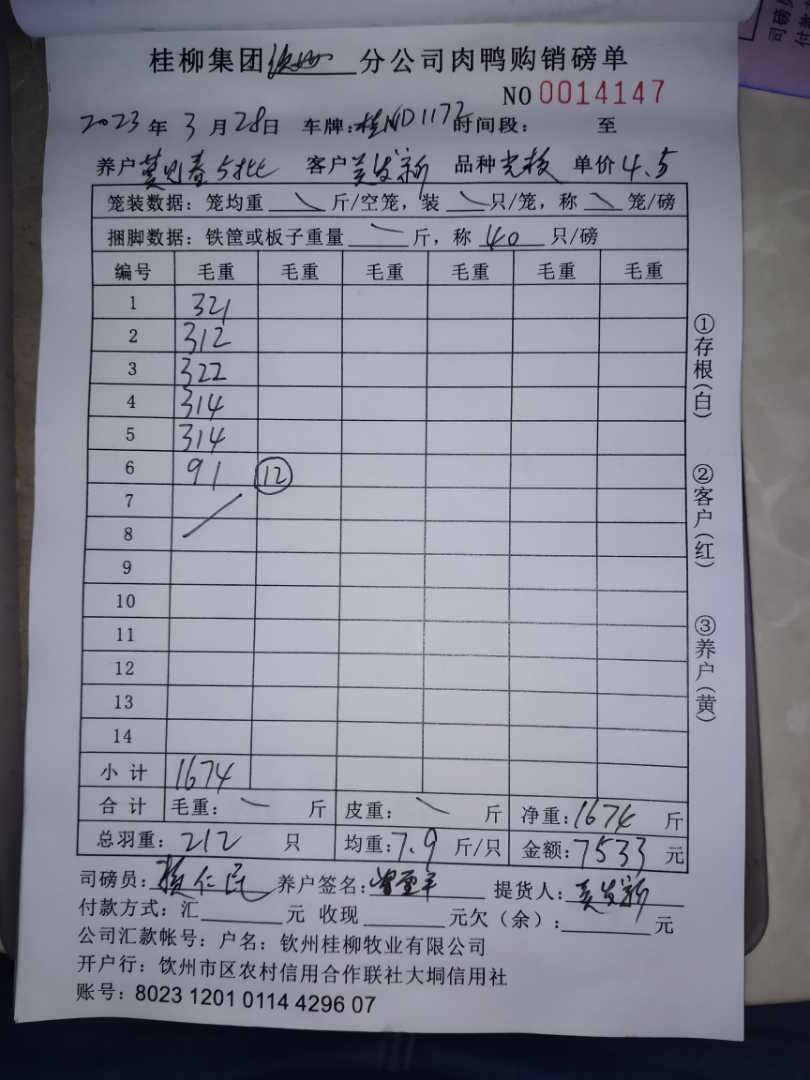 桂柳集团 分公司肉鸭购销磅单
NO 0014147
2023年3月28日 车牌:桂ND1172 时间段: 至
养户 5批 客户 发新 品种光板 单价4.5
笼装数据: 笼均重 \ 斤/空笼, 装 \ 只/笼, 称 \ 笼/磅
捆脚数据: 铁筐或板子重量 \ 斤, 称 40 只/磅
编号 毛重 毛重 毛重 毛重 毛重 毛重
1 321
2 312
3 322
4 314
5 314
6 91 ⑫
7
8
9
10
11
12
13
14
小计 1674
合计 毛重: \ 斤 皮重: \ 斤 净重:1674 斤
总羽重: 212 只 均重:7.9 斤/只 金额:7533 元
司磅员: 仁民 养户签名: 提货人: 发新
付款方式: 汇 元 收现 元欠(余): 元
公司汇款帐号: 户名: 钦州桂柳牧业有限公司
开户行: 钦州市区农村信用合作联社大垌信用社
账号: 8023 1201 0114 4296 07
①存根(白)
②客户(红)
③养户(黄)
司磅
付款